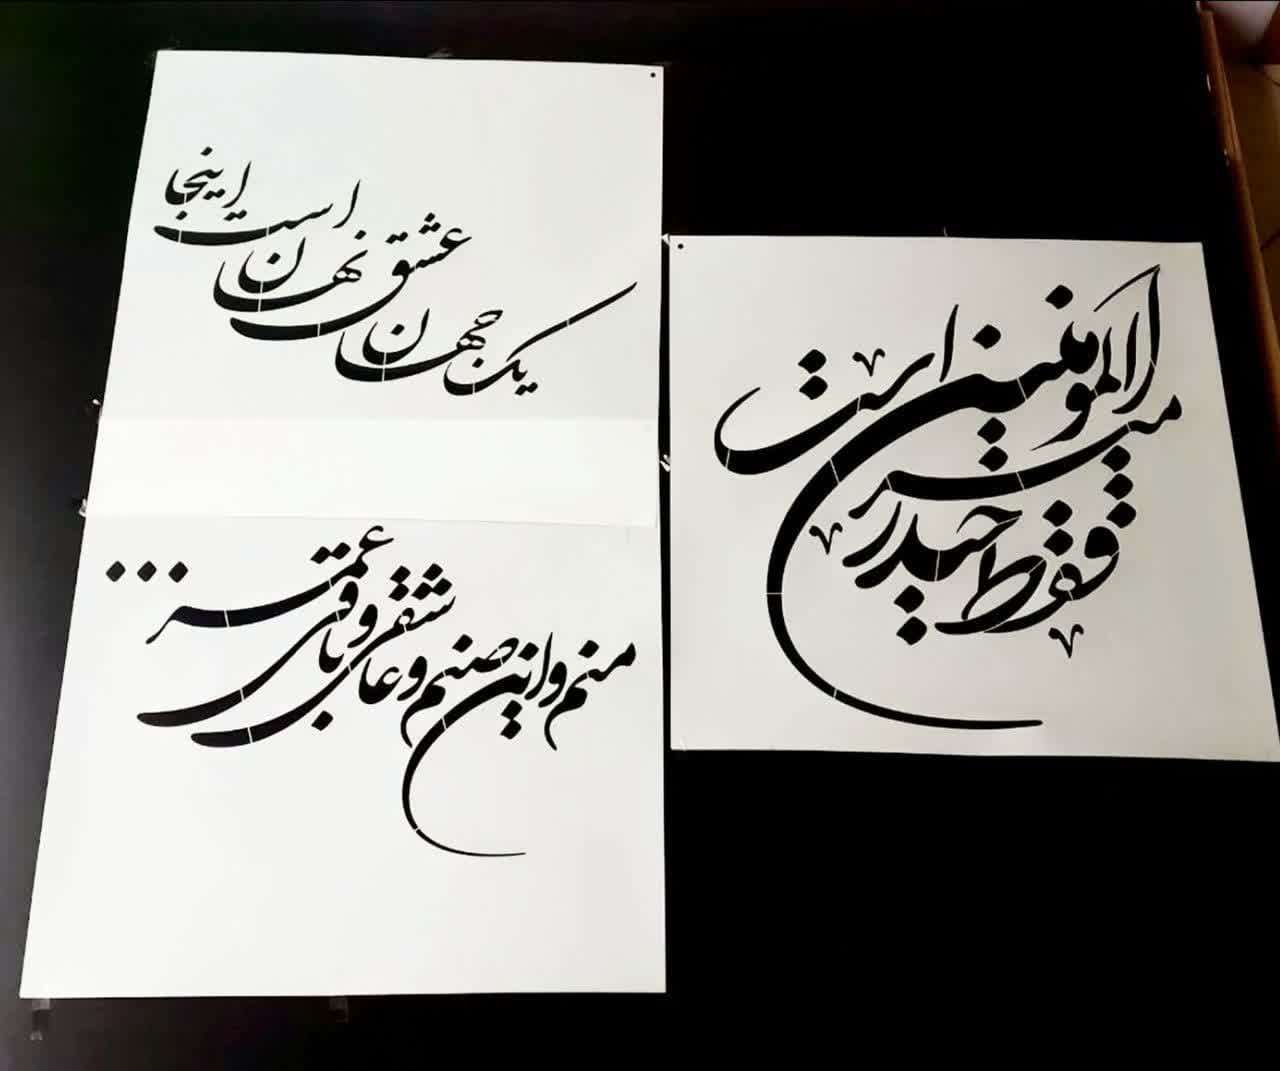 یک جهان عشق نهان است اینجا
منم و این صنم و عاشقی و باقی عمر...
فقط حیدر امیرالمومنین است